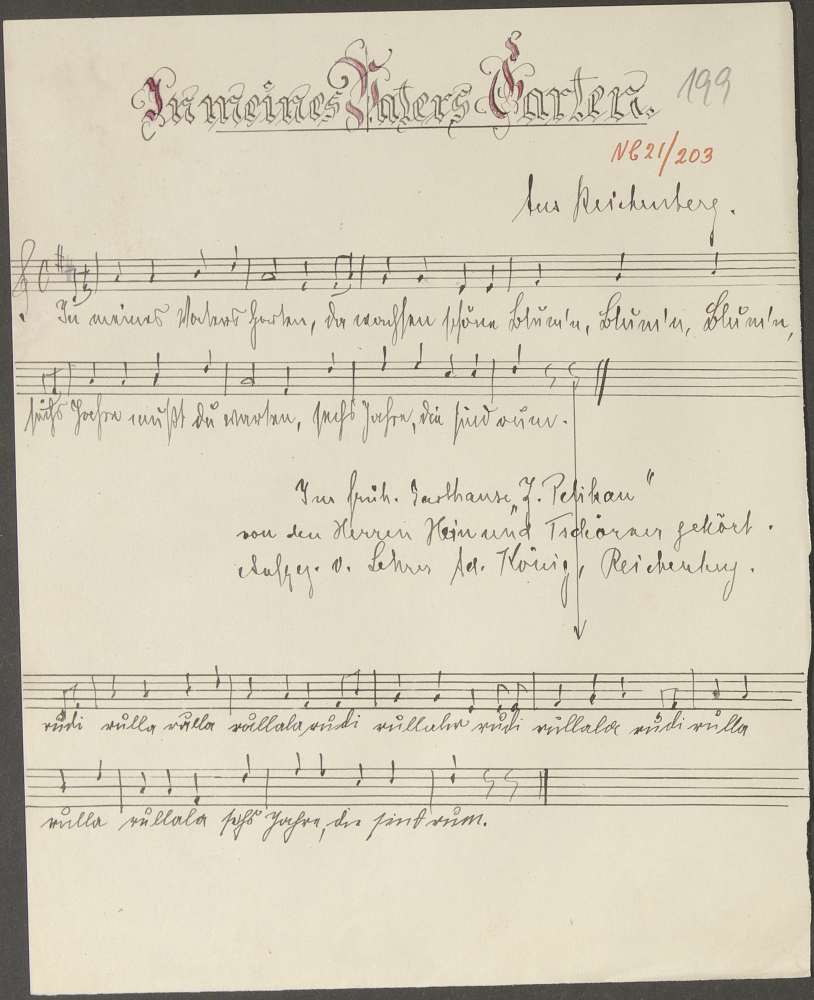 In meines Vaters Garten. 199
NB 21/203
Aus Reichenberg.
In meines Vaters Garten, da wachsen schöne Blum'n, Blum'n, Blum'n,
sechs Jahre mußt du warten, sechs Jahre, die sind rum.
Im früh. Gasthause „Z. Pelikan"
von den Herren Hein und Tschörner gehört.
Aufgez. v. Lehrer Ad. König, Reichenberg.
rudi rulla rulla rullala rudi rullala rudi rullala rudi rulla
rulla rullala sechs Jahre, die sind rum.